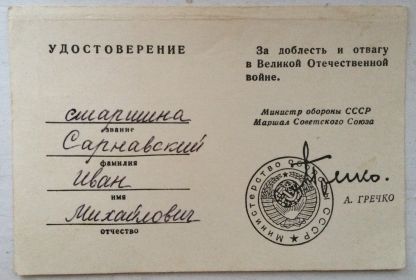 УДОСТОВЕРЕНИЕ
старшина
звание
Сарнавский
фамилия
Иван
имя
Михайлович
отчество
За доблесть и отвагу
в Великой Отечественной
войне.
Министр обороны СССР
Маршал Советского Союза
А. ГРЕЧКО
Министерство обороны СССР